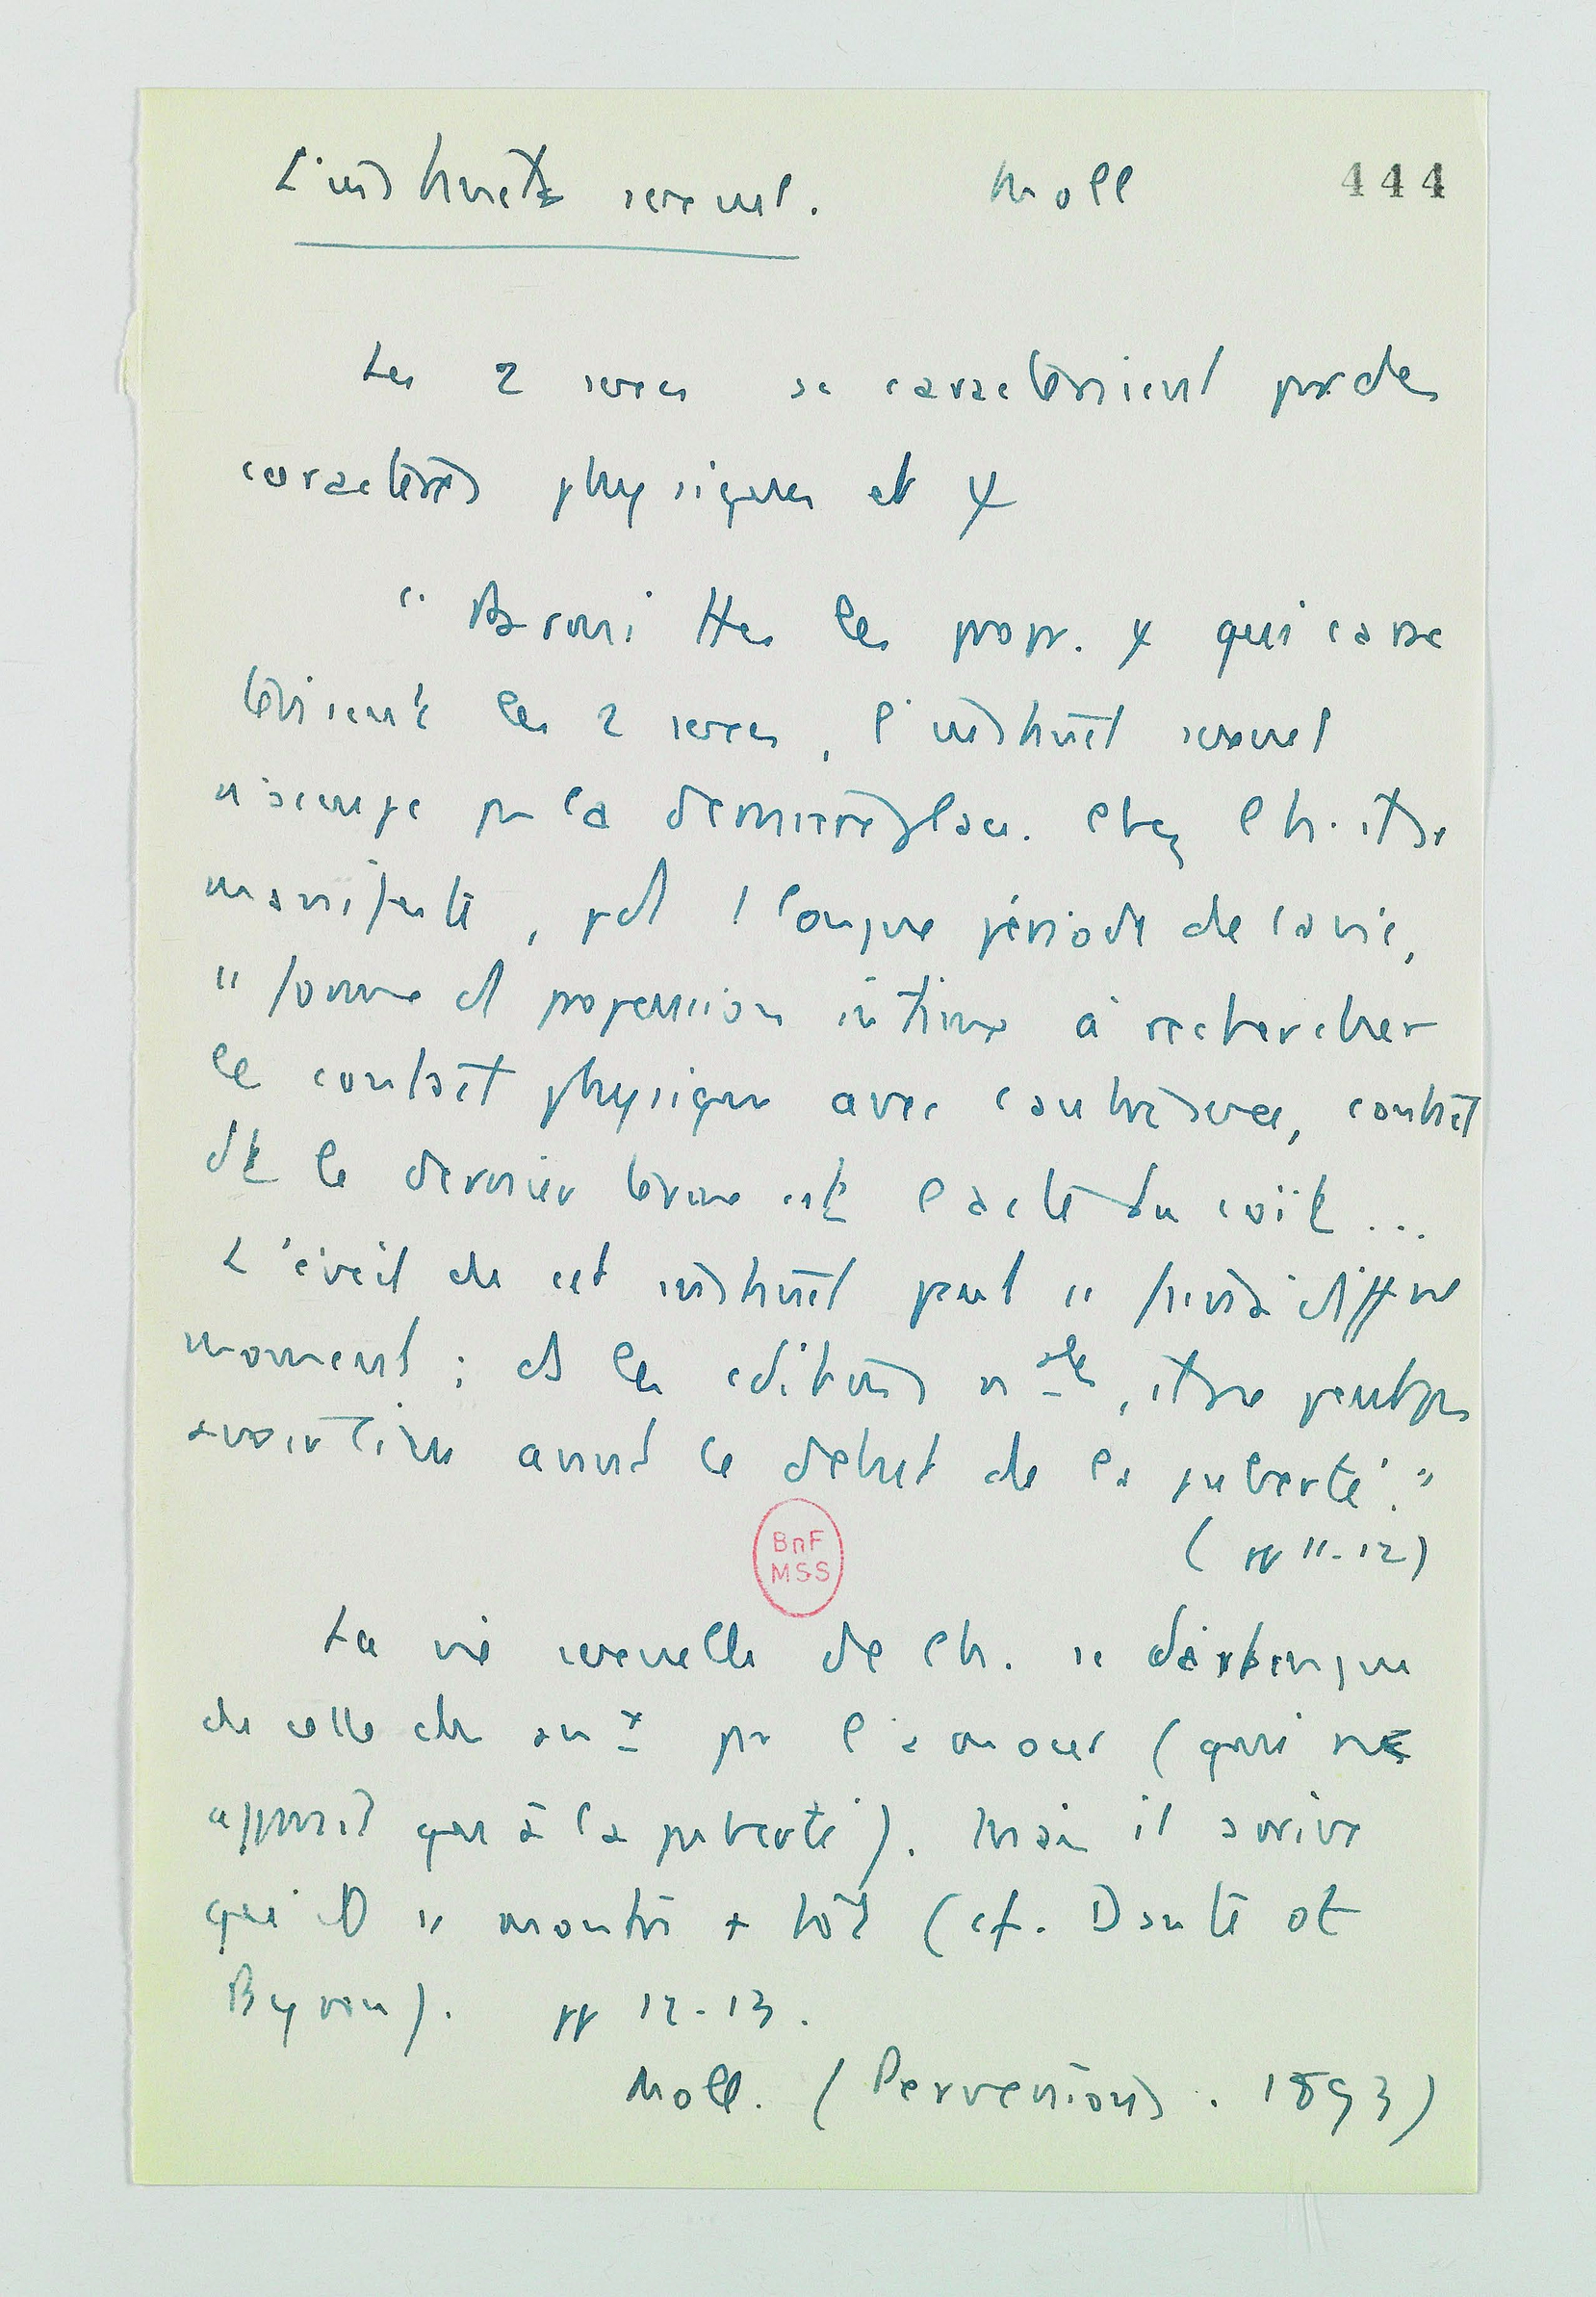 L'instinct sexuel. Moll 444
Les 2 sexes se caractérisent par des
caractères physiques et ψ
"Parmi ttes les propr. ψ qui carac
térisent les 2 sexes, l'instinct sexuel
occupe la première place. Chez l'h. il se
manifeste, pdt 1 longue période de la vie,
ss forme d' propension intime à rechercher
le contact physique avec l'autre sexe, contact
dt le dernier terme est l'acte du coït...
L'éveil de cet instinct peut se faire à diffts
moments ; ds les conditions nales, il ne peut pas
avoir lieu avant le début de la puberté."
(pp 11-12)
La vie sexuelle de l'h. se distingue
de celle des anx par l'amour (qui ne
apparaît qu'à la puberté). Mais il arrive
qu'il se montre + tôt (cf. Dante et
Byron). pp 12-13.
Moll. (Perversions. 1893)
BnF
MSS